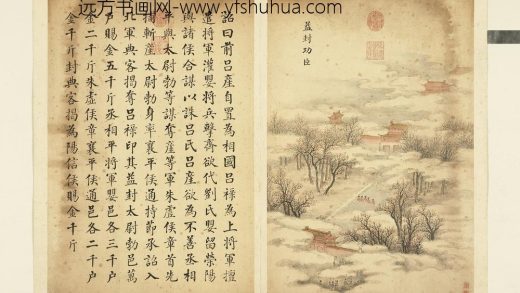 远方书画网-www.yfshuhua.com
益封功臣
詔曰前呂產自置為相國呂祿為上將軍擅
遣將軍灌嬰將兵擊齊欲代劉氏嬰留滎陽
與諸侯合謀以誅呂氏呂產欲為不善丞相
平與太尉勃等謀奪產等軍朱虛侯章首先
捕斬產太尉勃身率襄平侯通持節承詔入
北軍典客揭奪呂祿印其益封太尉勃邑萬
戶賜金五千斤丞相平將軍嬰邑各三千戶
金二千斤朱虛侯章襄平侯通邑各二千戶
金千斤封典客揭為陽信侯賜金千斤